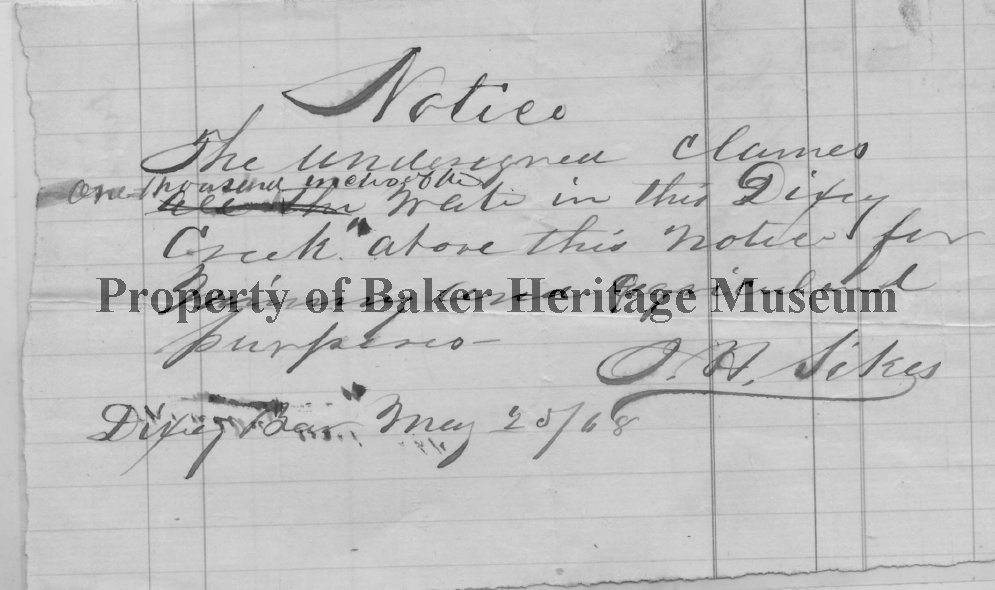 Notice
The undesigned Claimes
one thousand inches of the
all the Water in this Dixey
Creek above this Notice for
Mining and Agricultural
Property of Baker Heritage Museum
purposes
J. H. Sikes
Dixey Bar May 25/68